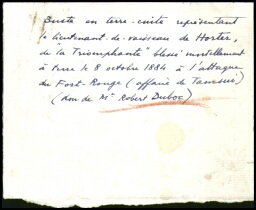 Buste en terre-cuite représentant
le lieutenant de-vaisseau de Horter,
de "la Triomphante" blessé mortellement
à terre le 8 octobre 1884 à l'attaque
du Fort-Rouge (affaire de Tamsui)
(don de Mr Robert Duboc)